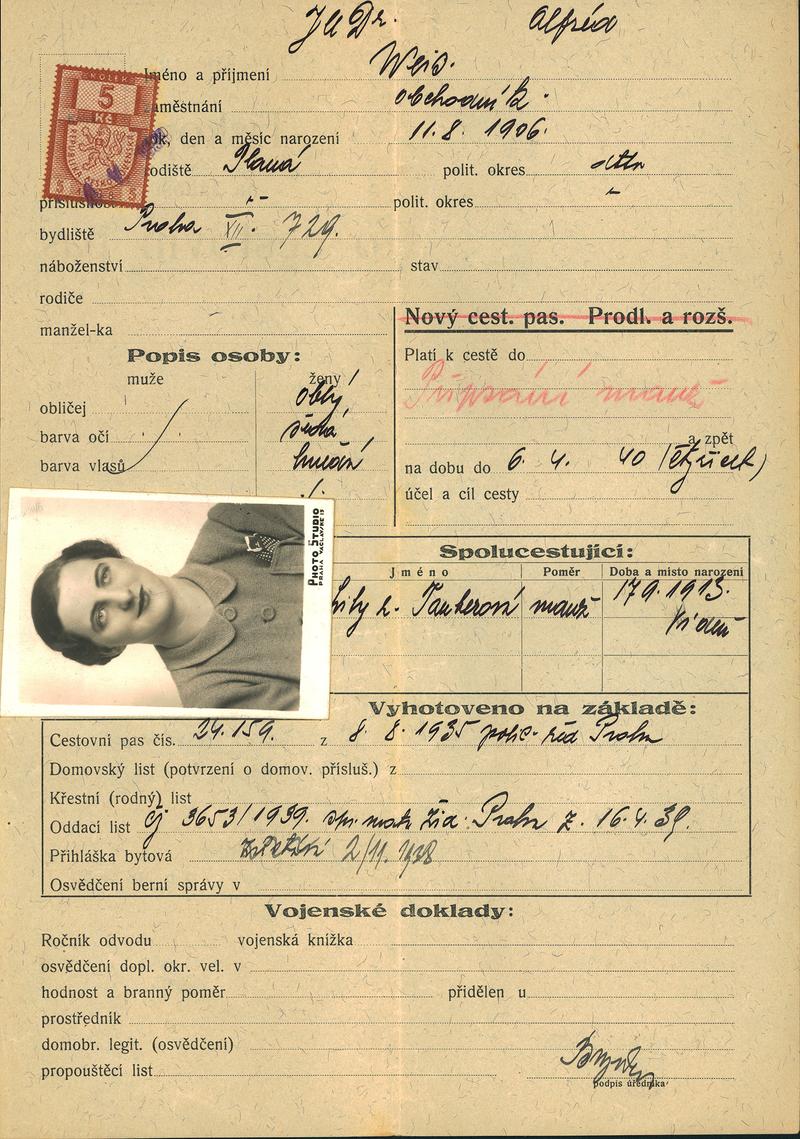 JUDr. Alfréd
Weis.
Jméno a příjmení
obchodník.
zaměstnání
rok, den a měsíc narození 11.8. 1906.
rodiště Planá polit. okres
příslušnost polit. okres
bydliště Praha XII. 729.
náboženství stav
rodiče
manžel-ka
Nový cest. pas. Prodl. a rozš.
Popis osoby:
muže ženy
obličej oblý
barva očí šedá
barva vlasů hnědá
Platí k cestě do
Připsání manž
a zpět
na dobu do 6. 4. 40
účel a cíl cesty
KOLEK
5
Kč
PHOTO STUDIO
Spolucestující:
Jméno Poměr Doba a místo narození
Lily r. Tauberová manž 17.9.1913.
Vídeň
Vyhotoveno na základě:
Cestovní pas čís. 24.159. z 8. 8. 1935 polic. řed Praha
Domovský list (potvrzení o domov. přísluš.) z
Křestní (rodný) list
Oddací list čj 3653/1939. spr. matr. žid. Praha z. 16.4.39.
Přihláška bytová 2/11. 1938
Osvědčení berní správy v
Vojenské doklady:
Ročník odvodu vojenská knížka
osvědčení dopl. okr. vel. v
hodnost a branný poměr přidělen u
prostředník
domobr. legit. (osvědčení)
propouštěcí list
podpis úředníka